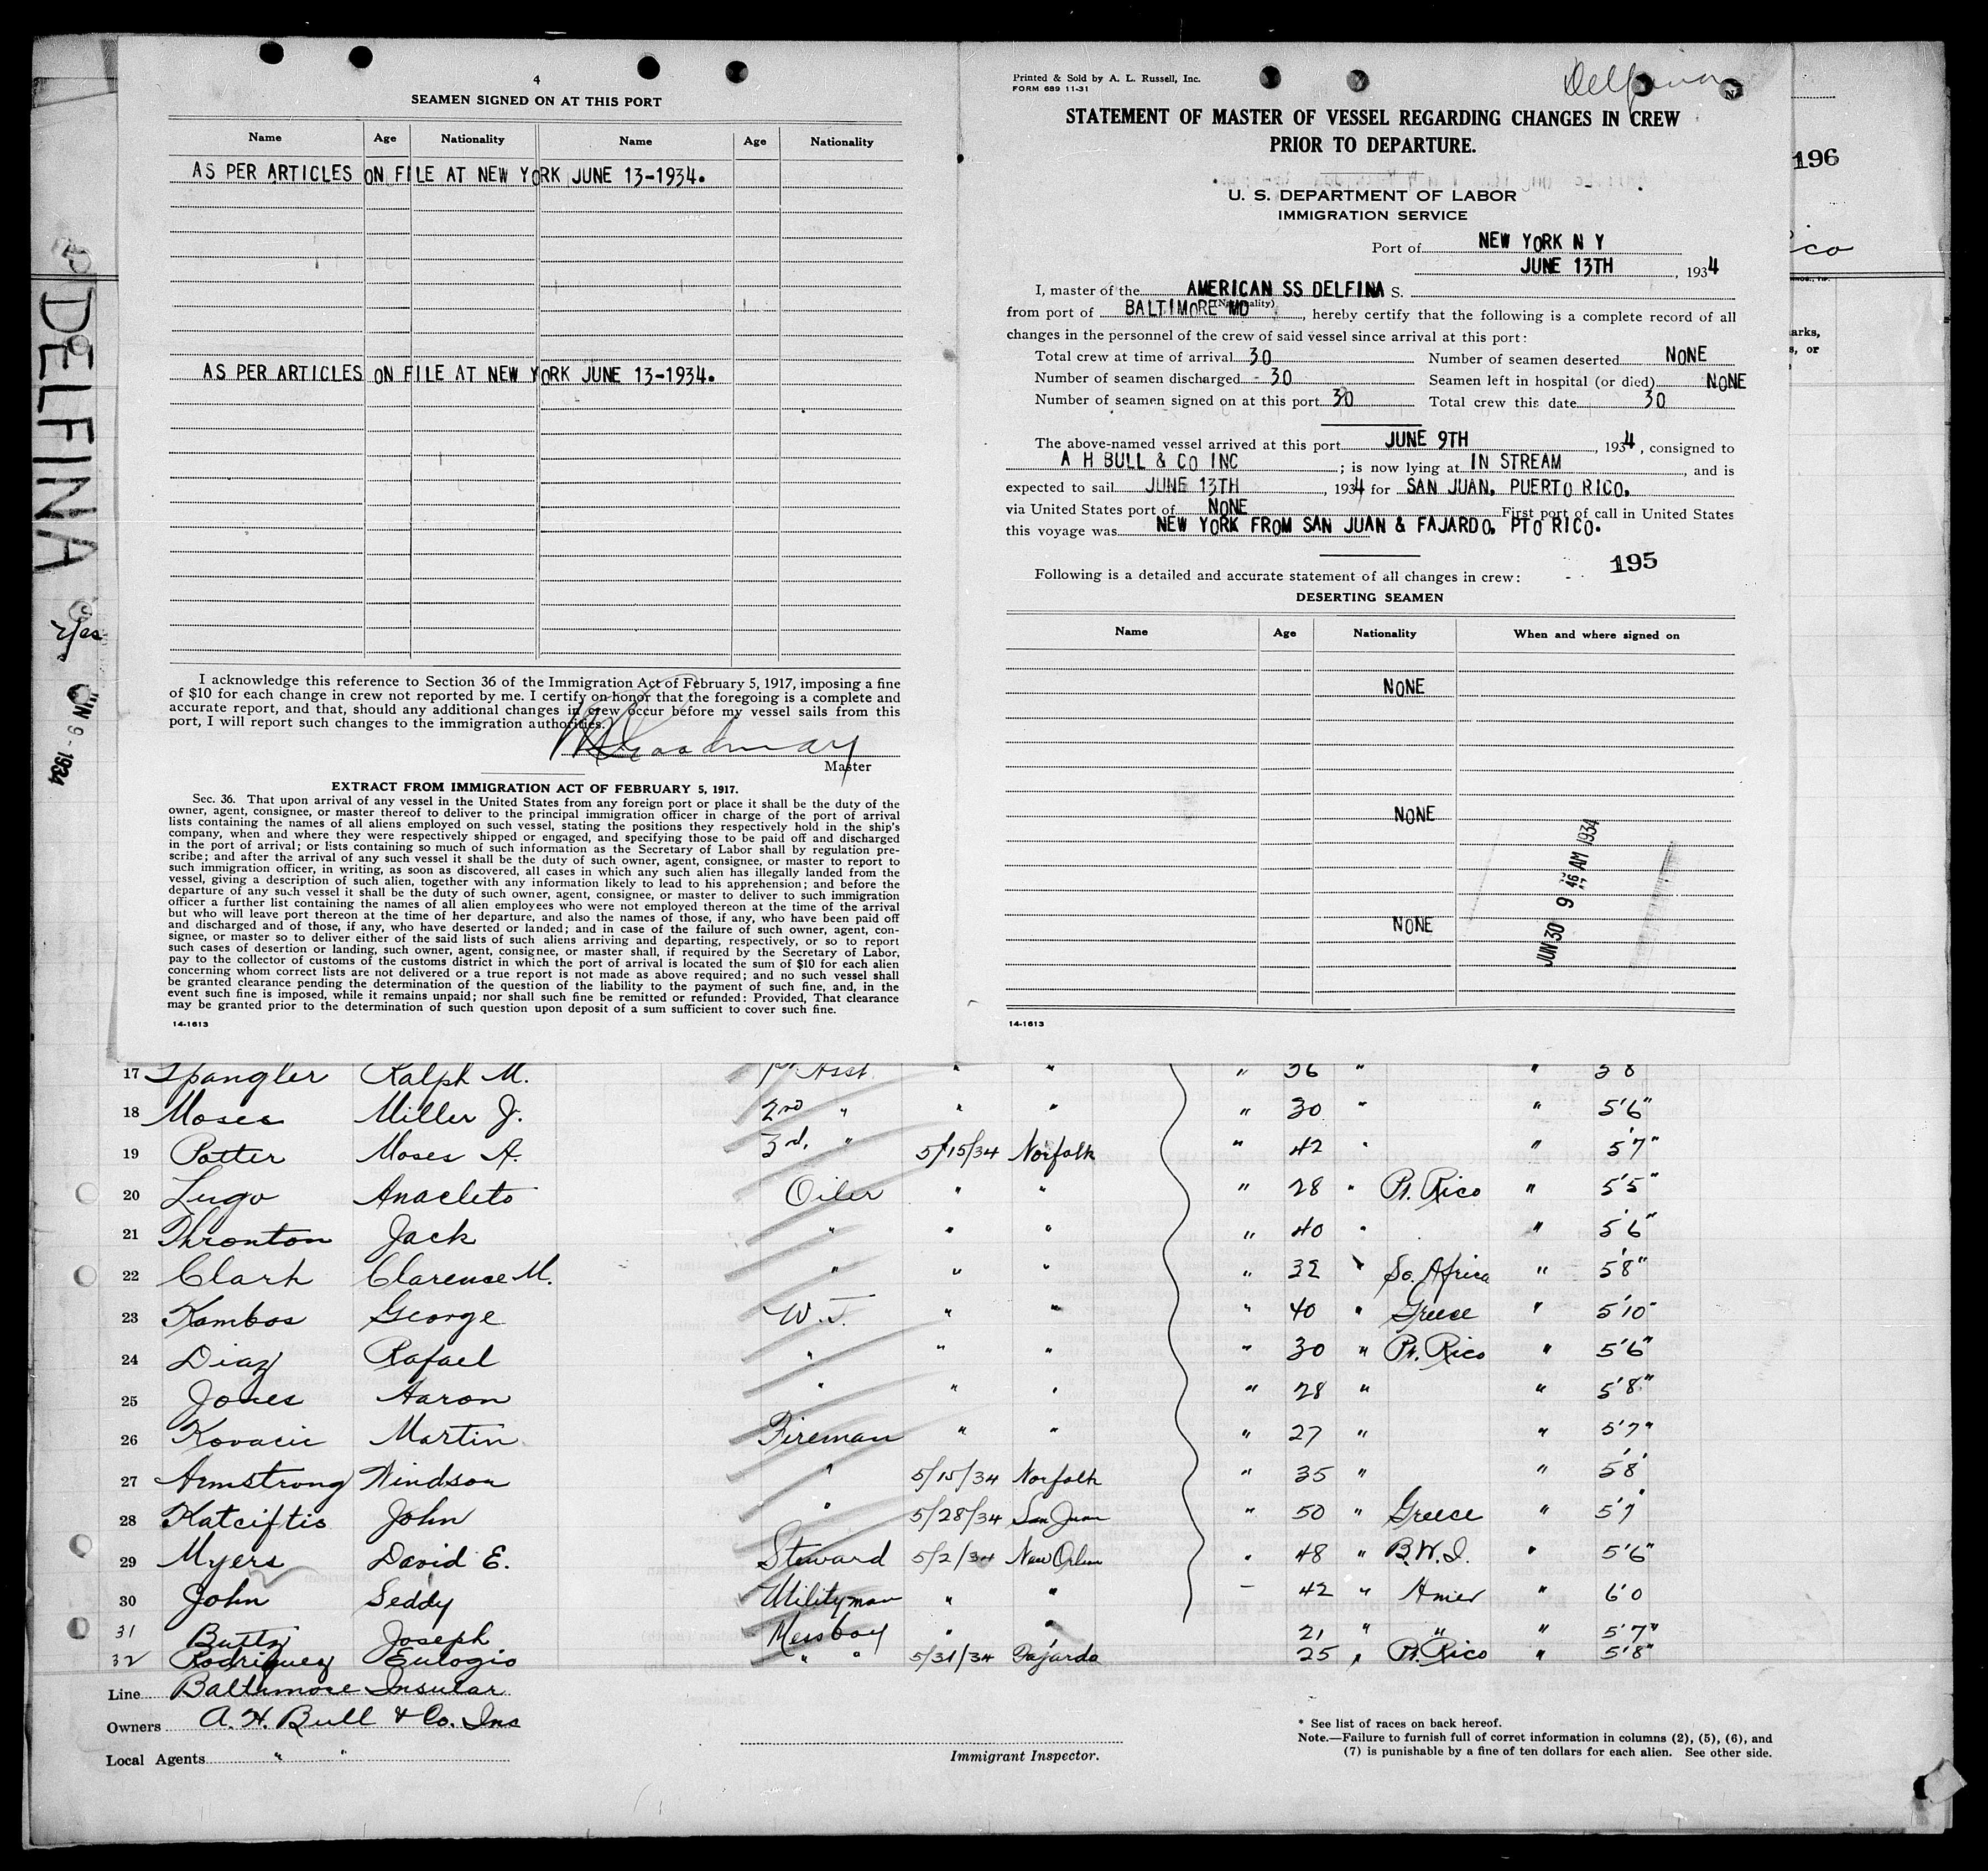 4
SEAMEN SIGNED ON AT THIS PORT
Name Age Nationality Name Age Nationality
AS PER ARTICLES ON FILE AT NEW YORK JUNE 13-1934.
AS PER ARTICLES ON FILE AT NEW YORK JUNE 13-1934.
I acknowledge this reference to Section 36 of the Immigration Act of February 5, 1917, imposing a fine
of $10 for each change in crew not reported by me. I certify on honor that the foregoing is a complete and
accurate report, and that, should any additional changes in crew occur before my vessel sails from this
port, I will report such changes to the immigration authorities.
Master
EXTRACT FROM IMMIGRATION ACT OF FEBRUARY 5, 1917.
Sec. 36. That upon arrival of any vessel in the United States from any foreign port or place it shall be the duty of the
owner, agent, consignee, or master thereof to deliver to the principal immigration officer in charge of the port of arrival
lists containing the names of all aliens employed on such vessel, stating the positions they respectively hold in the ship's
company, when and where they were respectively shipped or engaged, and specifying those to be paid off and discharged
in the port of arrival; or lists containing so much of such information as the Secretary of Labor shall by regulation pre-
scribe; and after the arrival of any such vessel it shall be the duty of such owner, agent, consignee, or master to report to
such immigration officer, in writing, as soon as discovered, all cases in which any such alien has illegally landed from the
vessel, giving a description of such alien, together with any information likely to lead to his apprehension; and before the
departure of any such vessel it shall be the duty of such owner, agent, consignee, or master to deliver to such immigration
officer a further list containing the names of all alien employees who were not employed thereon at the time of the arrival
but who will leave port thereon at the time of her departure, and also the names of those, if any, who have been paid off
and discharged and of those, if any, who have deserted or landed; and in case of the failure of such owner, agent, con-
signee, or master so to deliver either of the said lists of such aliens arriving and departing, respectively, or so to report
such cases of desertion or landing, such owner, agent, consignee, or master shall, if required by the Secretary of Labor,
pay to the collector of customs of the customs district in which the port of arrival is located the sum of $10 for each alien
concerning whom correct lists are not delivered or a true report is not made as above required; and no such vessel shall
be granted clearance pending the determination of the question of the liability to the payment of such fine, and, in the
event such fine is imposed, while it remains unpaid; nor shall such fine be remitted or refunded: Provided, That clearance
may be granted prior to the determination of such question upon deposit of a sum sufficient to cover such fine.
14-1613
Printed & Sold by A. L. Russell, Inc.
FORM 689 11-31
Delfina
STATEMENT OF MASTER OF VESSEL REGARDING CHANGES IN CREW
PRIOR TO DEPARTURE.
U. S. DEPARTMENT OF LABOR
IMMIGRATION SERVICE
Port of NEW YORK N Y
JUNE 13TH, 1934
I, master of the AMERICAN SS DELFINA S.
(Nationality)
from port of BALTIMORE MD, hereby certify that the following is a complete record of all
changes in the personnel of the crew of said vessel since arrival at this port:
Total crew at time of arrival 30 Number of seamen deserted NONE
Number of seamen discharged 30 Seamen left in hospital (or died) NONE
Number of seamen signed on at this port 30 Total crew this date 30
The above-named vessel arrived at this port JUNE 9TH, 1934, consigned to
A H BULL & CO INC; is now lying at IN STREAM, and is
expected to sail JUNE 13TH, 1934 for SAN JUAN, PUERTO RICO.
via United States port of NONE First port of call in United States
this voyage was NEW YORK FROM SAN JUAN & FAJARDO. PTO RICO.
195
Following is a detailed and accurate statement of all changes in crew:
DESERTING SEAMEN
Name Age Nationality When and where signed on
NONE
NONE
NONE
JUN 30 9 46 AM 1934
14-1613
196
ico
arks,
s, or
DELFINA
Yes
JUN 9 - 1934
17 Spangler Ralph M. 1st Asst. " " " 36 " " 5'8
18 Moses Miller J. 2nd " " " " 30 " " 5'6"
19 Potter Moses A. 3rd. " 5/15/34 Norfolk " 42 " " 5'7"
20 Lugo Anacleto Oiler " " " 28 " Pt. Rico " 5'5"
21 Thronton Jack " " " " 40 " " 5'6"
22 Clark Clarence M. " " " " 32 " So. Africa " 5'8"
23 Kambos George W.T. " " " 40 " Greece " 5'10"
24 Diaz Rafael " " " " 30 " Pt. Rico " 5'6"
25 Jones Aaron " " " " 28 " " 5'8"
26 Kovacic Martin Fireman " " " 27 " " 5'7"
27 Armstrong Windson " 5/15/34 Norfolk " 35 " " 5'8"
28 Katciftis John " 5/28/34 San Juan " 50 " Greece " 5'7"
29 Myers David E. Steward 5/2/34 New Orlean " 48 " B.W.I. " 5'6"
30 John Seddy Utilityman " " " 42 " Amer " 6'0
31 Buttz Joseph Messboy " " 21 " " " 5'7"
32 Rodriguez Eulogio " " 5/31/34 Fajardo 25 " Pt. Rico " 5'8"
Line Baltimore Insular
Owners A. H. Bull & Co. Inc
Local Agents " "
Immigrant Inspector.
* See list of races on back hereof.
Note.—Failure to furnish full of corret information in columns (2), (5), (6), and
(7) is punishable by a fine of ten dollars for each alien. See other side.